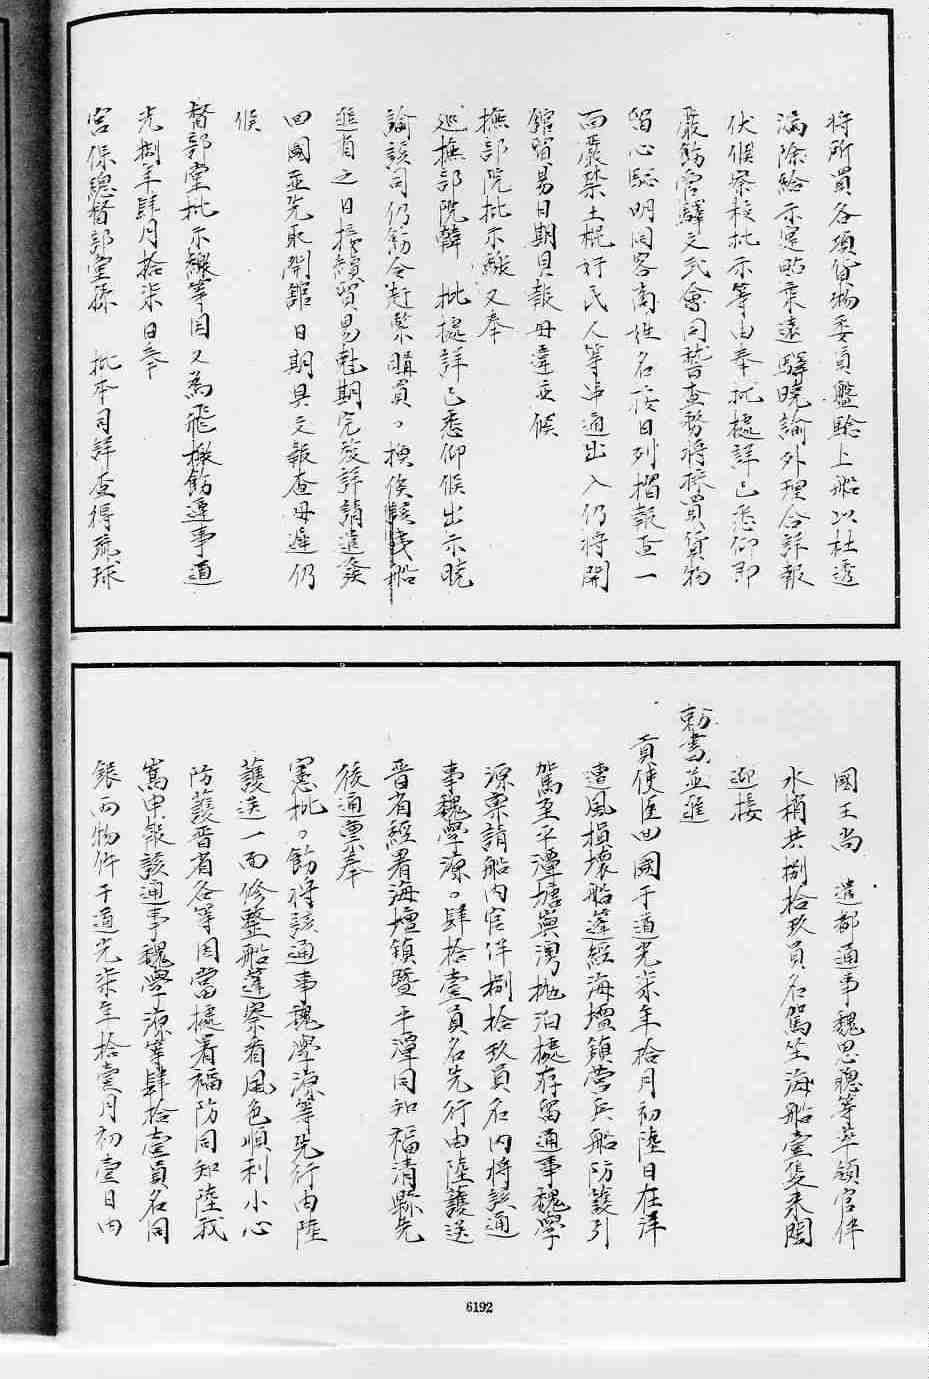 將所買各項貨物委員盤驗上船以杜透
漏除給示寔貼柔遠驛曉諭外理合詳報
伏候察核批示等由奉批據詳已悉仰即
嚴飭官驛文武會同稽查務將採買貨物
留心驗明同客商姓名按日列摺報查一
面嚴禁土棍奸民人等串通出入仍將開
館貿易日期具報毋違並候
撫部院批示繳又奉
巡撫部院韓 批據詳已悉仰候出示曉
諭該司仍飭令赶緊購買〻換俟該曳船
進省之日接續貿易尅期完竣詳請遣發
回國並先取開舘日期具文報查毋遲仍
候
督部堂批示繳等因又為飛檄飭遵事道
光捌年肆月拾柒日奉
宮保總督部堂孫 批本司詳查得琉球
國王尚 遣都通事魏思聰等率領官伴
水梢共捌拾玖員名駕坐海船壹隻來閩
迎接
勅書並進
貢使臣回國于道光柒年拾月初陸日在洋
遭風損壞船蓬經海壇鎮營兵船防護引
駕至平潭塘嶼灣拋泊據存留通事魏學
源稟請船內官伴捌拾玖員名內將該通
事魏學源〻肆拾壹員名先行由陸護送
晉省經署海壇鎮暨平潭同知福清縣先
後通稟奉
憲批〻飭將該通事魏學源等先行由陸
護送一面修整船蓬察看風色順利小心
防護晉省各等因當據署福防同知陸我
嵩申報該通事魏學源等肆拾壹員名同
銀兩物件于道光柒年拾壹月初壹日內
6192